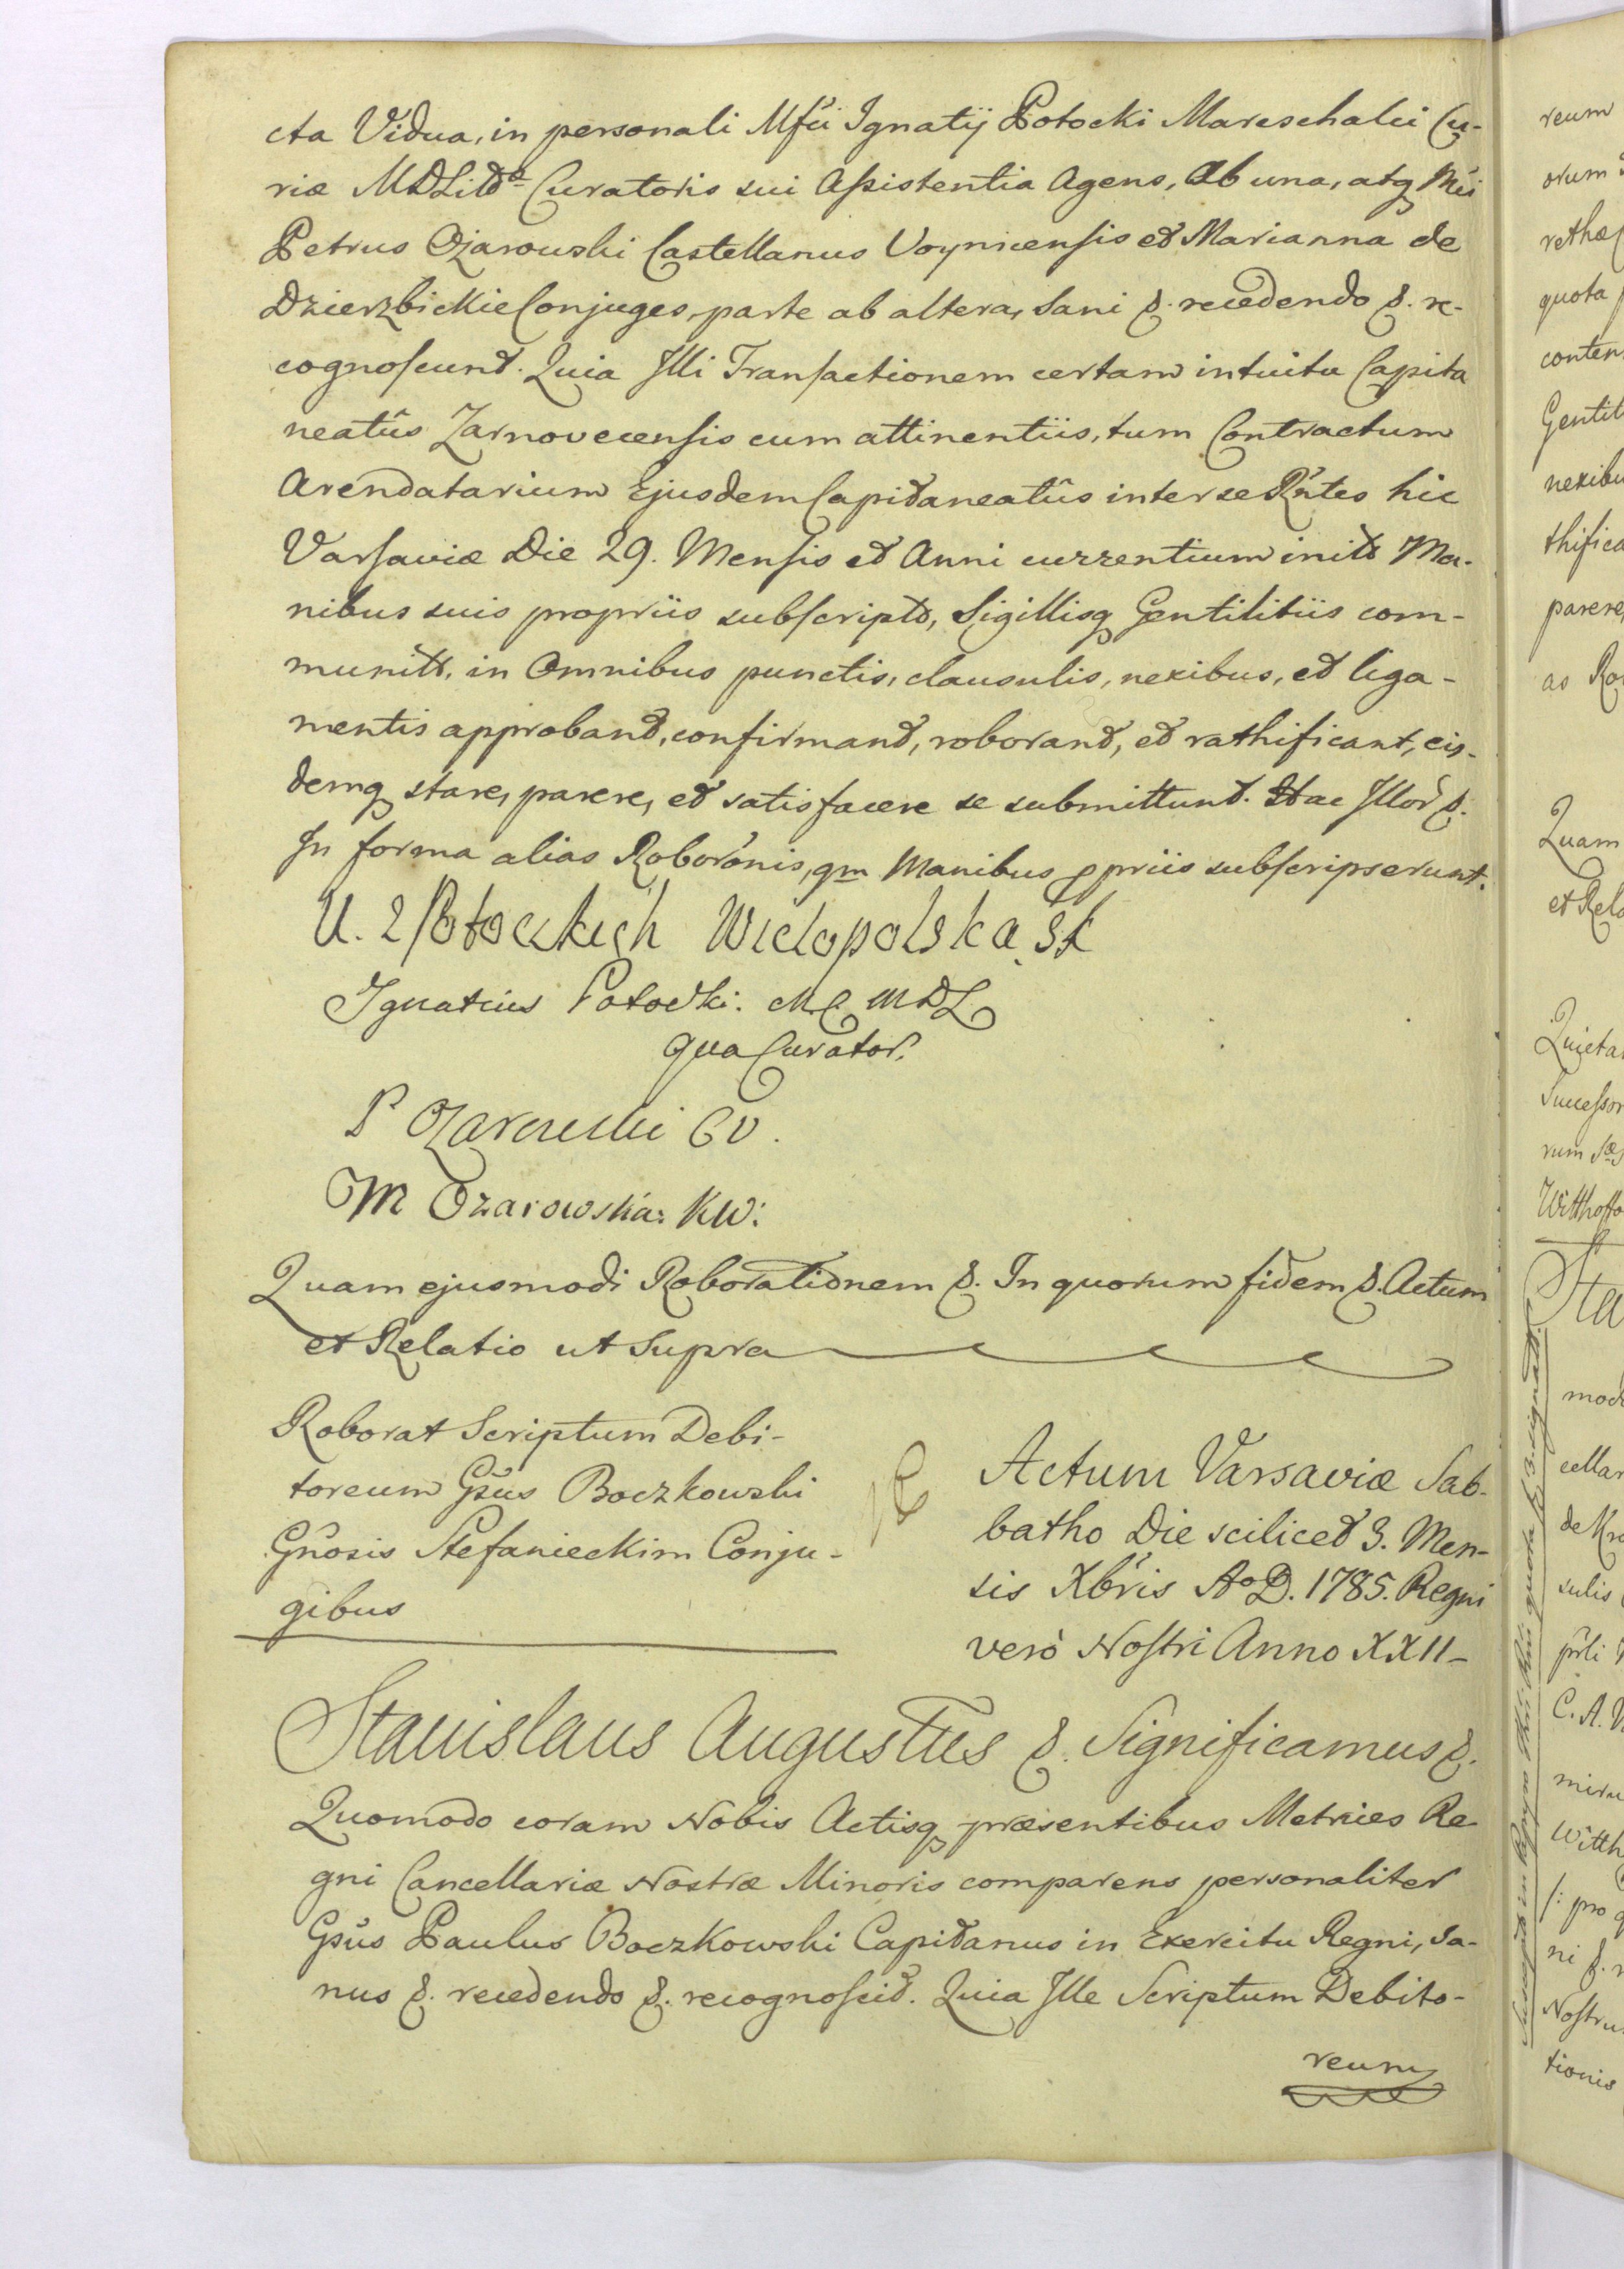 cta Vidua, in personali Mfci Ignatij Potocki Mareschalci Cu-
riæ MDLitt Curatoris sui Aſsistentia Agens, Ab una, atq Mci
Petrus Ożarowski Castellanus Voynicenſis et Marianna de
Dzierzbickie Conjuges, parte ab altera, Sani &. recedendo &. re-
cognoſcunt. Quia Illi Tranſactionem certam intuitu Capita
neatûs Zarnovecenſis cum attinentiis, tum Contractum
Arendatarium Ejusdem Capitaneatûs inter se Rntes hic
Varſaviæ Die 29. Menſis et Anni currentium initt Ma-
nibus suis propriis subſcript, Sigillisq Gentilitiis com-
munitt, in Omnibus punctis, clausulis, nexibus, et liga-
mentis approband, confirmand, roborand, et rathificant, eis-
demq stare, parere, et satisfacere se submittunt. Hac Illor &.
In forma alias Roboronis, qm Manibus ppriis subſcripserunt.
U. z Potockich Wielopolska SK
Ignatius Potocki. M C MDL
qua Curator.
P Ożarowski CV.
M Ożarowska: KW:
Quam ejusmodi Roborationem &. In quorum fidem &. Actum
et Relatio ut Supra
Roborat Scriptum Debi-
toreum Gsus Boczkowski
Gnosis Stefanieckim Conju-
gibus
Actum Varsaviæ Sab-
batho Die scilicet 3. Men-
sis Xbris Ao D. 1785. Regni
verò Noſtri Anno XXII-
Stanislaus Augustus &. Significamus &.
Quomodo coram Nobis Actisq præsentibus Metrices Re
gni Cancellariæ Nostræ Minoris comparens personaliter
Gsus Paulus Boczkowski Capitanus in Exercitu Regni, Sa-
nus &. recedendo &. recognoſcit. Quia Ille Scriptum Debito-
reum
reum
orum
rethæ
quota
conten
Gentil
nexibu
thifica
parere,
as Ro
Quam
et Rela
Quieta
Succeſsor
rum
Witthoff
Sta
mod
cellar
de Kro
sulis
prli
C. A.
miru
Witth
/: pro
ni &.
Noſtru
tionis